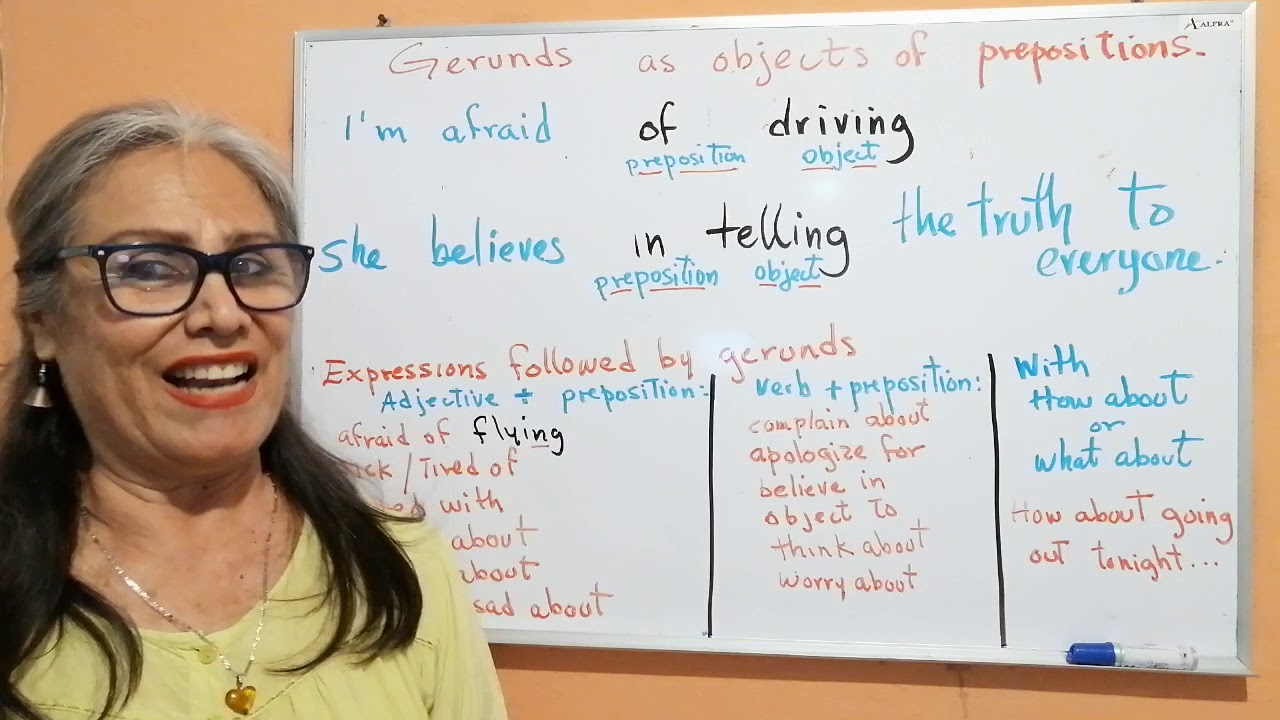 ALPRA
Gerunds as objects of prepositions.
I'm afraid of driving
preposition object
She believes in telling the truth to
everyone.
preposition object
Expressions followed by gerunds
Adjective + preposition:
afraid of flying
/Tired of
with
about
about
sad about
verb + preposition:
complain about
apologize for
believe in
object to
think about
worry about
With
How about
or
what about
How about going
out tonight...